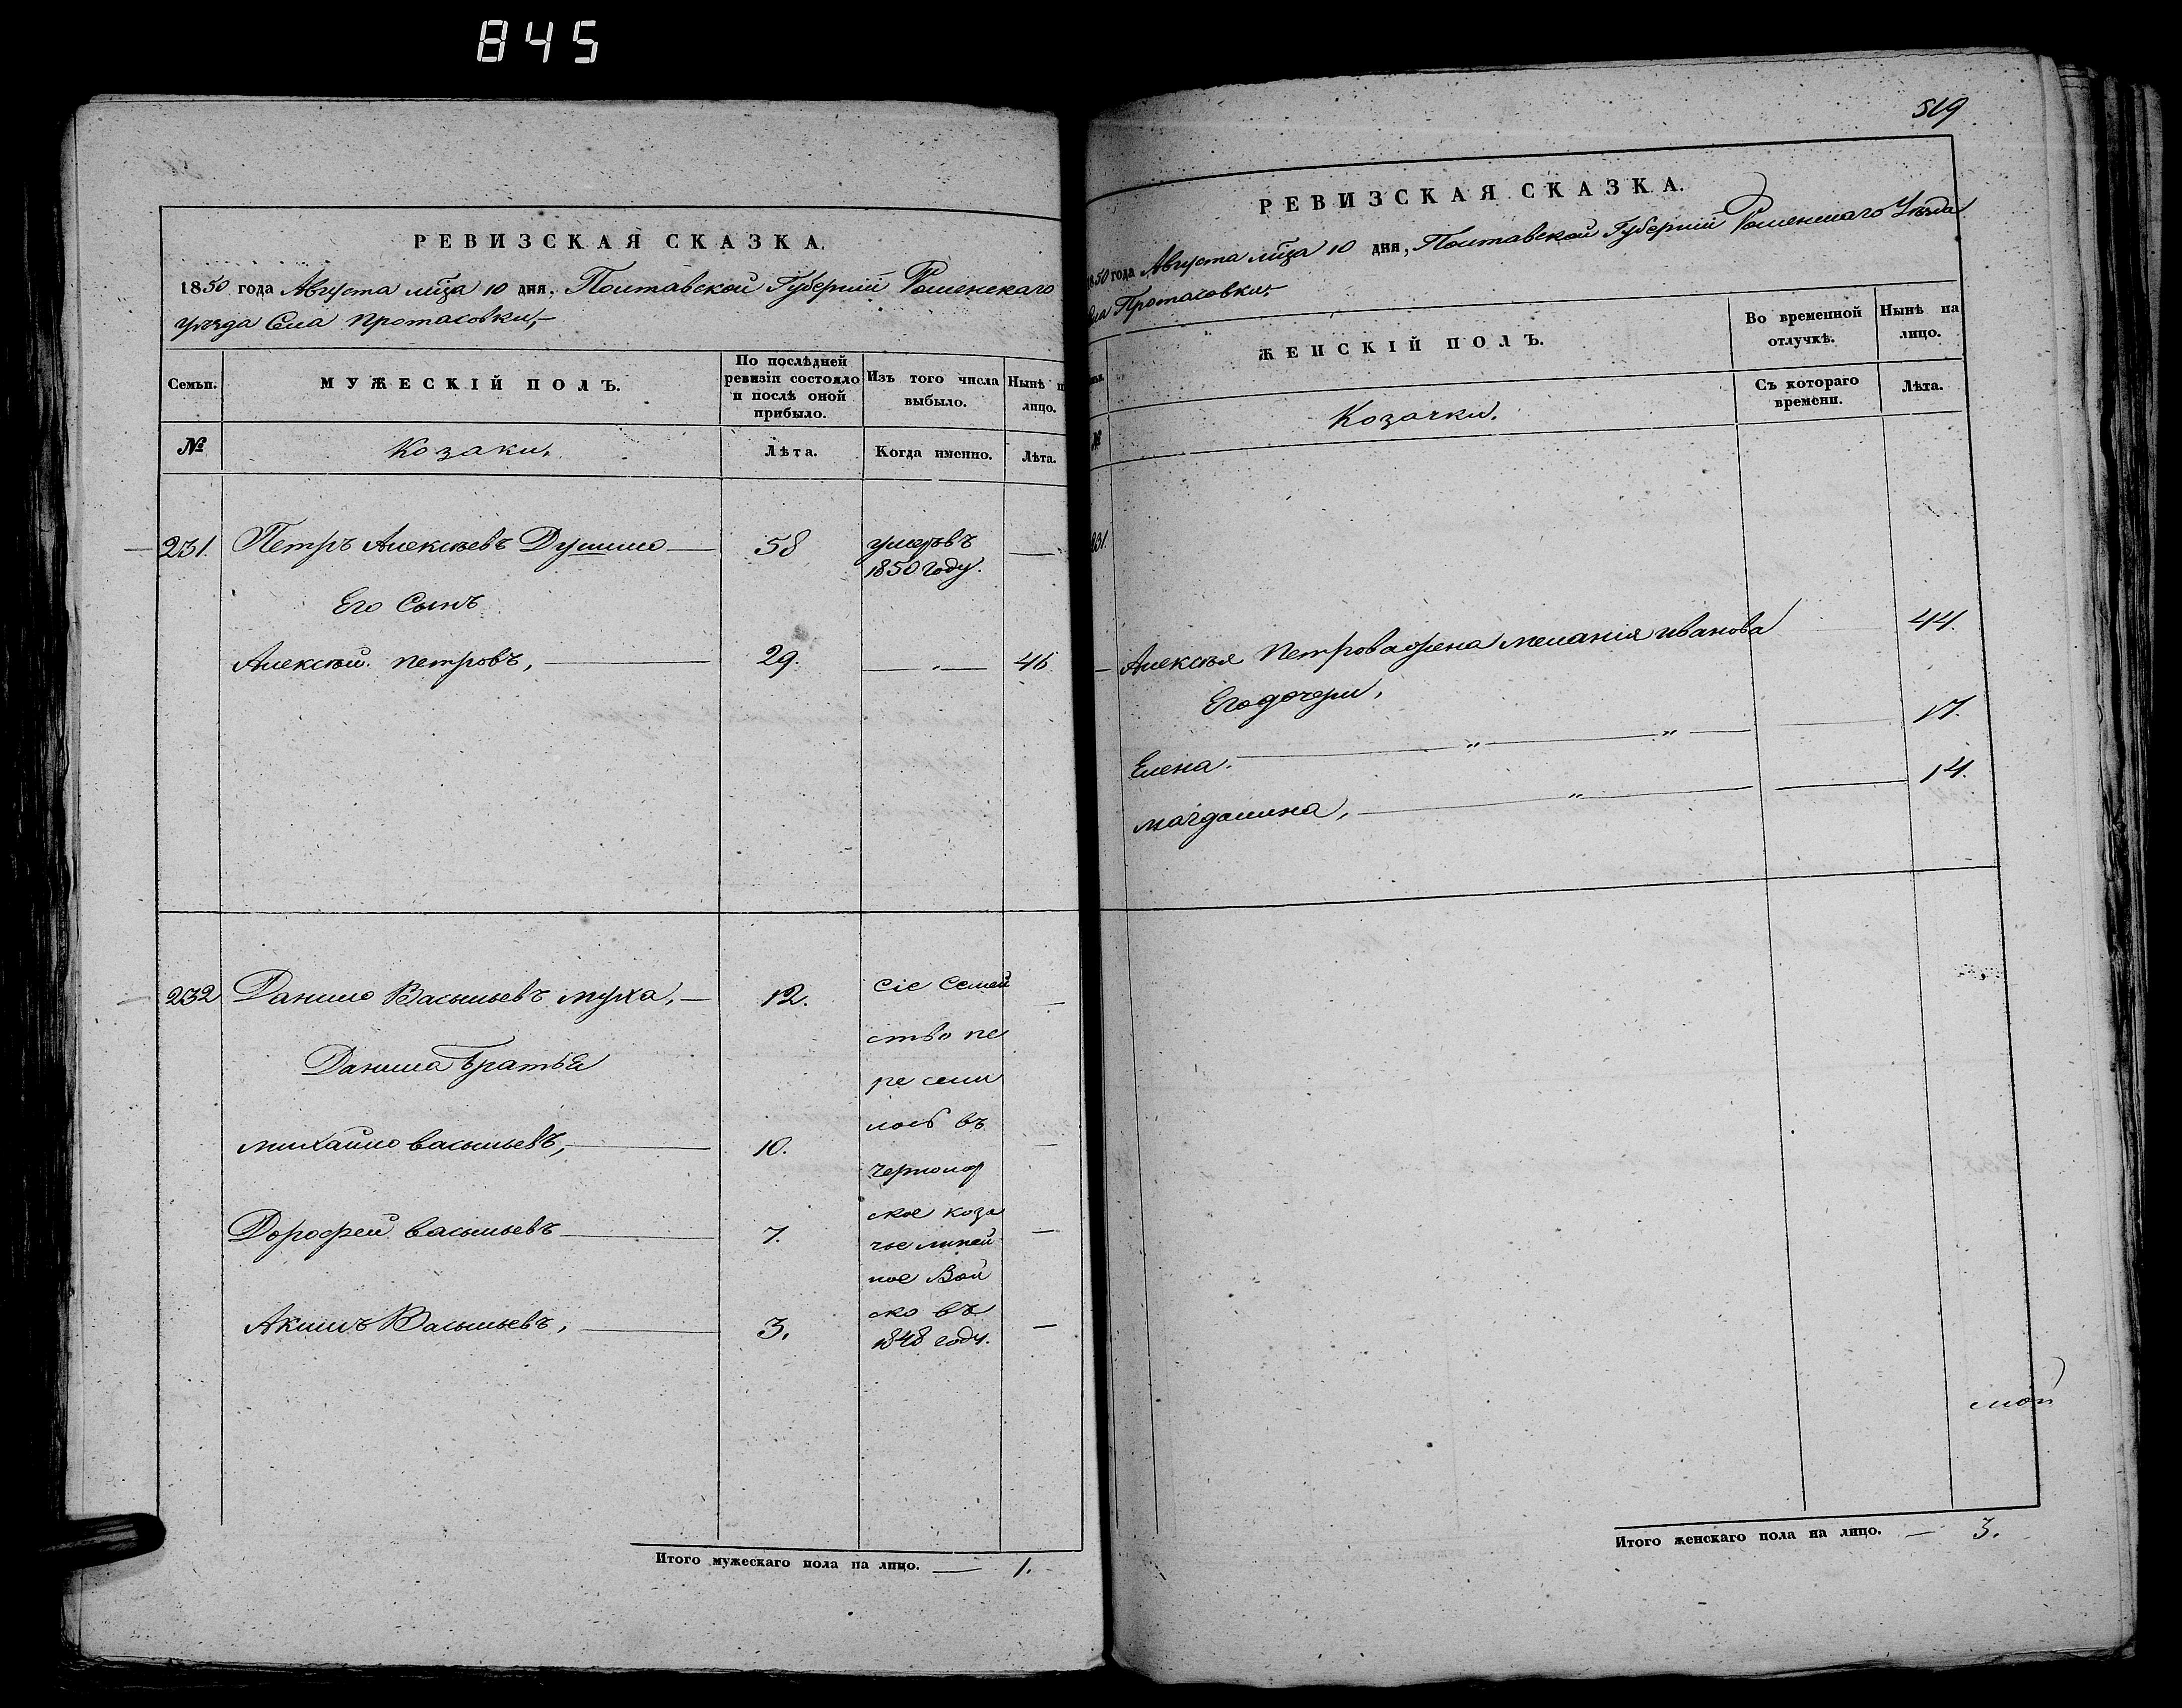 845
РЕВИЗСКАЯ СКАЗКА.
1850 года Августа мца 10 дня, Полтавской Губерніи Роменскаго
уѣзда Села Протасовки,
Семьи.
МУЖЕСКІЙ ПОЛЪ.
По послѣдней ревизіи состояло и послѣ оной прибыло.
Изъ того числа выбыло.
Нынѣ н лицо.
№
Козаки.
Лѣта.
Когда именно.
Лѣта.
231. Петръ Алексѣевъ — 58 умеръ въ
1850 году.
Его Сынъ
Алексѣй Петровъ, — 29. — 46
232 Данило Васильевъ муха, — 12. сіе семей
ство пе
Данила братья
ре сели
лось въ
михайло васильевъ, — 10.
черномор
ское коза
Дорофей васильевъ — 7. чье линей
ное Вой
Акимъ Васильевъ, — 3. ско въ
1848 году.
Итого мужескаго пола на лицо. — 1.
519
РЕВИЗСКАЯ СКАЗКА.
1850 года Августа мца 10 дня, Полтавской Губерніи Роменскаго Уѣзда
ела Протасовки.
ЖЕНСКІЙ ПОЛЪ.
Во временной отлучкѣ.
Нынѣ на лицо.
№
Козачки.
Съ котораго времени.
Лѣта.
231.
Алексѣя Петрова жена меланія иванова 44.
Его дочери,
Елена. — " — " — 17.
магдалина, — " — 14.
Итого женскаго пола на лицо. — 3.